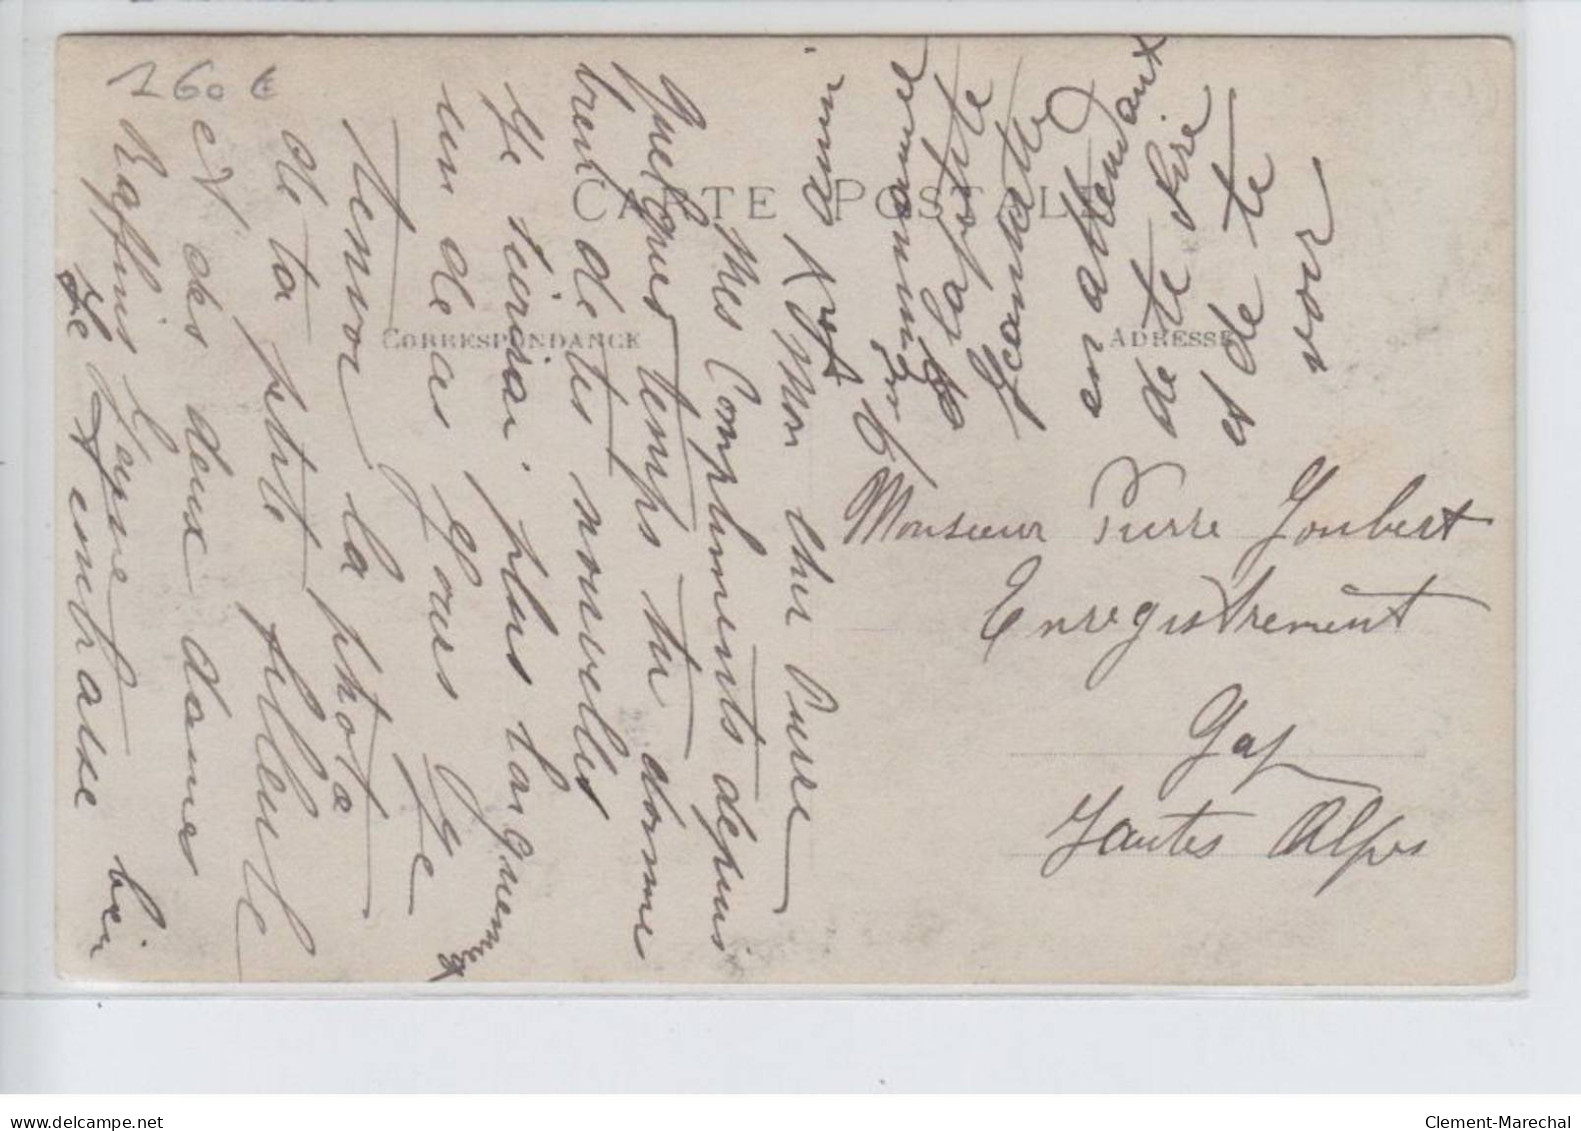 260 €
CARTE POSTALE
CORRESPONDANCE
ADRESSE
Mon cher Pierre
Mes Compliments depuis
quelques temps tu donne
bien de tes nouvelles
Je t'écrirai plus longuement
un de ces jours Je
t'envoi la photo
de ta petite filleule
et des deux dames
Raffin Jeanne
Je t'embrasse bien
la photo
Jeannette
en attendant
de te lire
et de te
voir
Monsieur Pierre Joubert
Enregistrement
Gap
Hautes Alpes
delcampe.net
Clement-Marechal